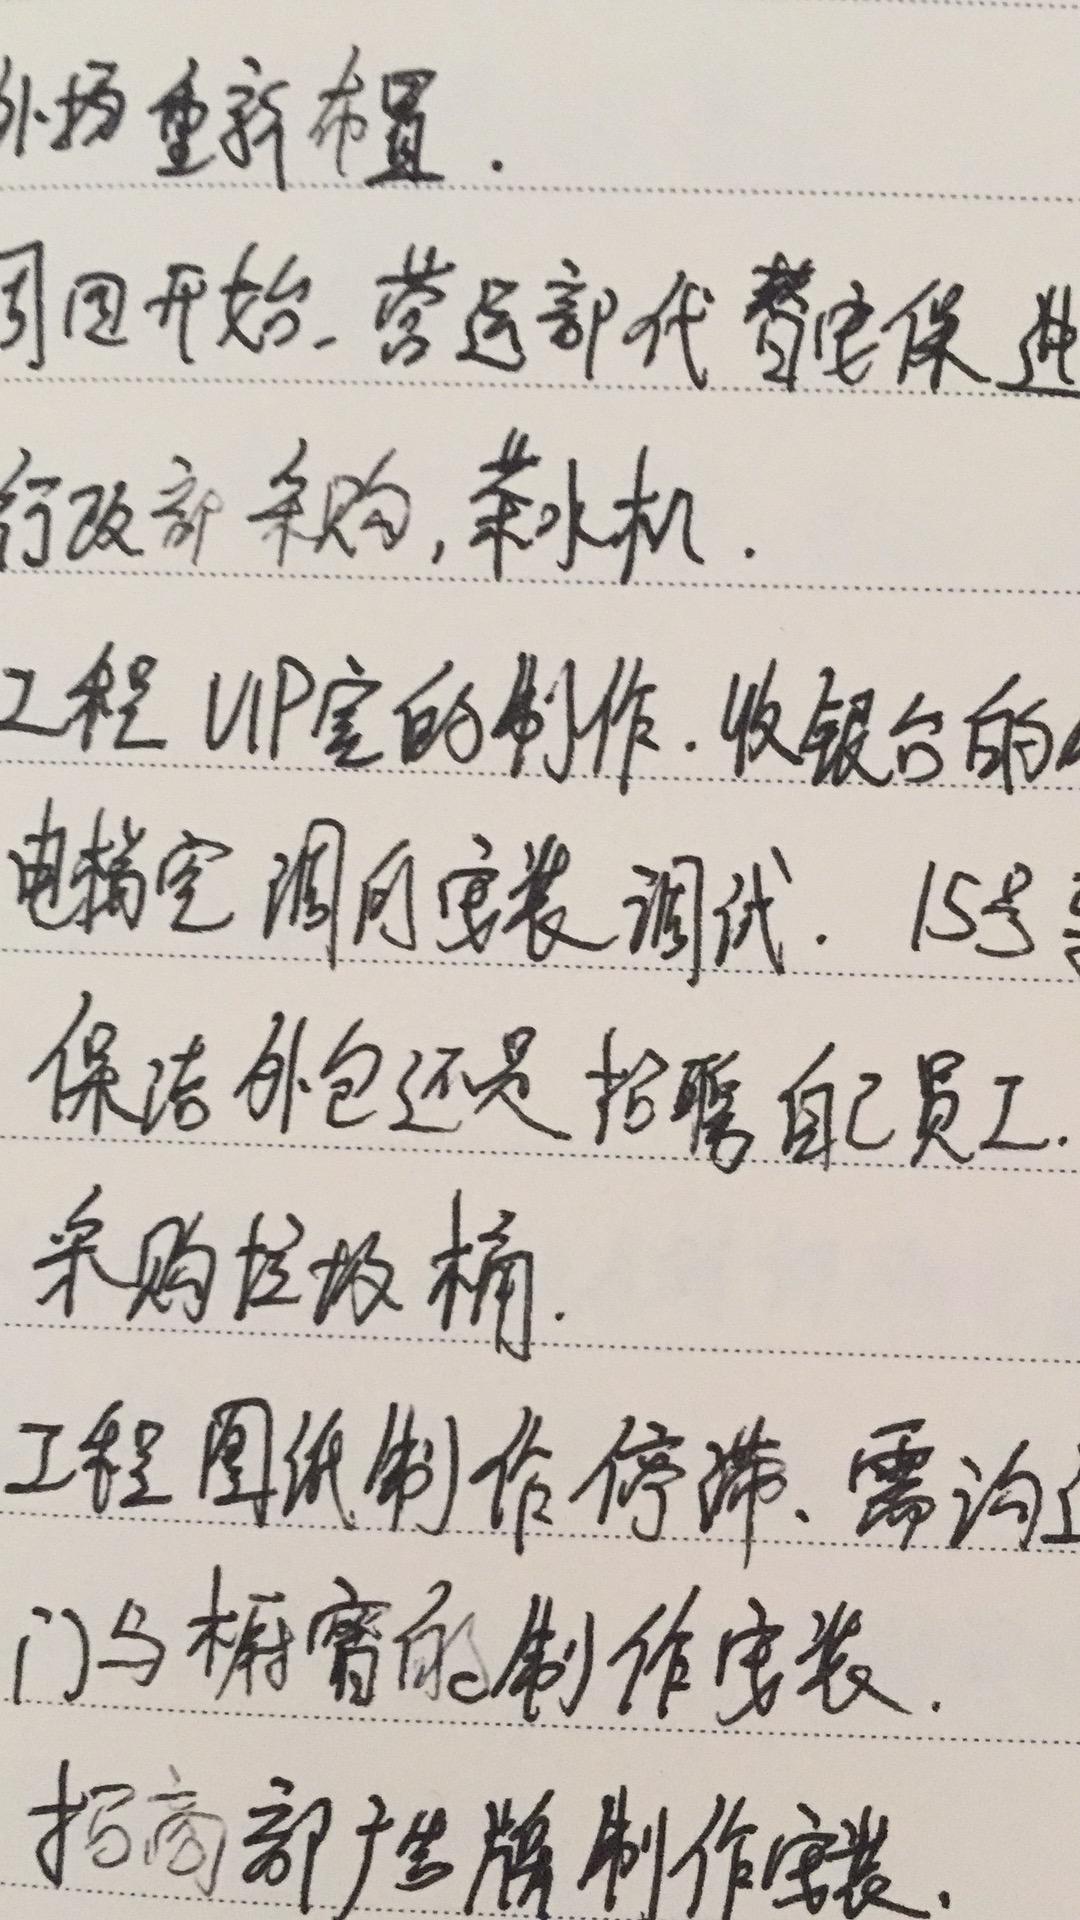 外场重新布置.
周四开始.营运部代替安保进
行政部采购,茶水机.
工程VIP室的制作.收银台的
电搞定 调月安装调试. 15号
保洁外包还是招聘自己员工.
采购垃圾桶.
工程图纸制作停滞、需沟
门与橱窗的制作安装.
招商部广告牌制作安装.